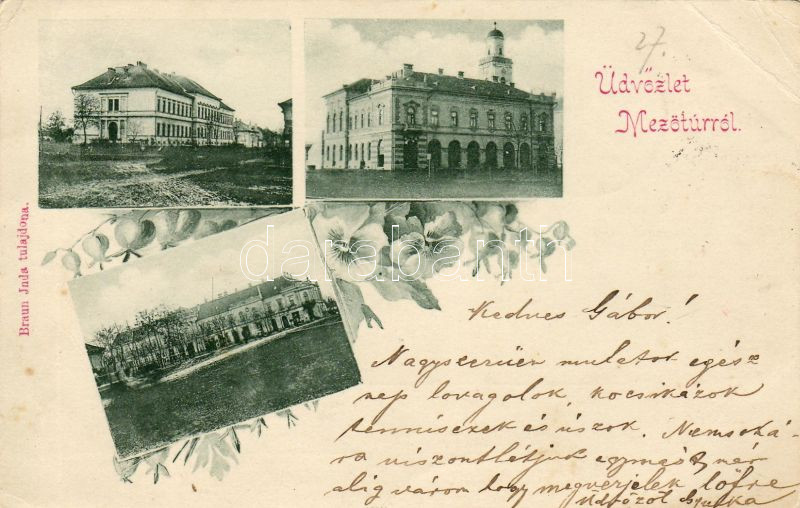 27.
Üdvözlet
Mezőtúrról.
Braun Jnda tulajdona.
darabanth
Kedves Gábor!
Nagyszerűen mulatok egész
nap lovagolok, kocsikázok
tenniszezek és úszok. Nemsoká-
ra viszontlátjuk egymást már
alig várom hogy megverjelek lőfre
Üdvözöl